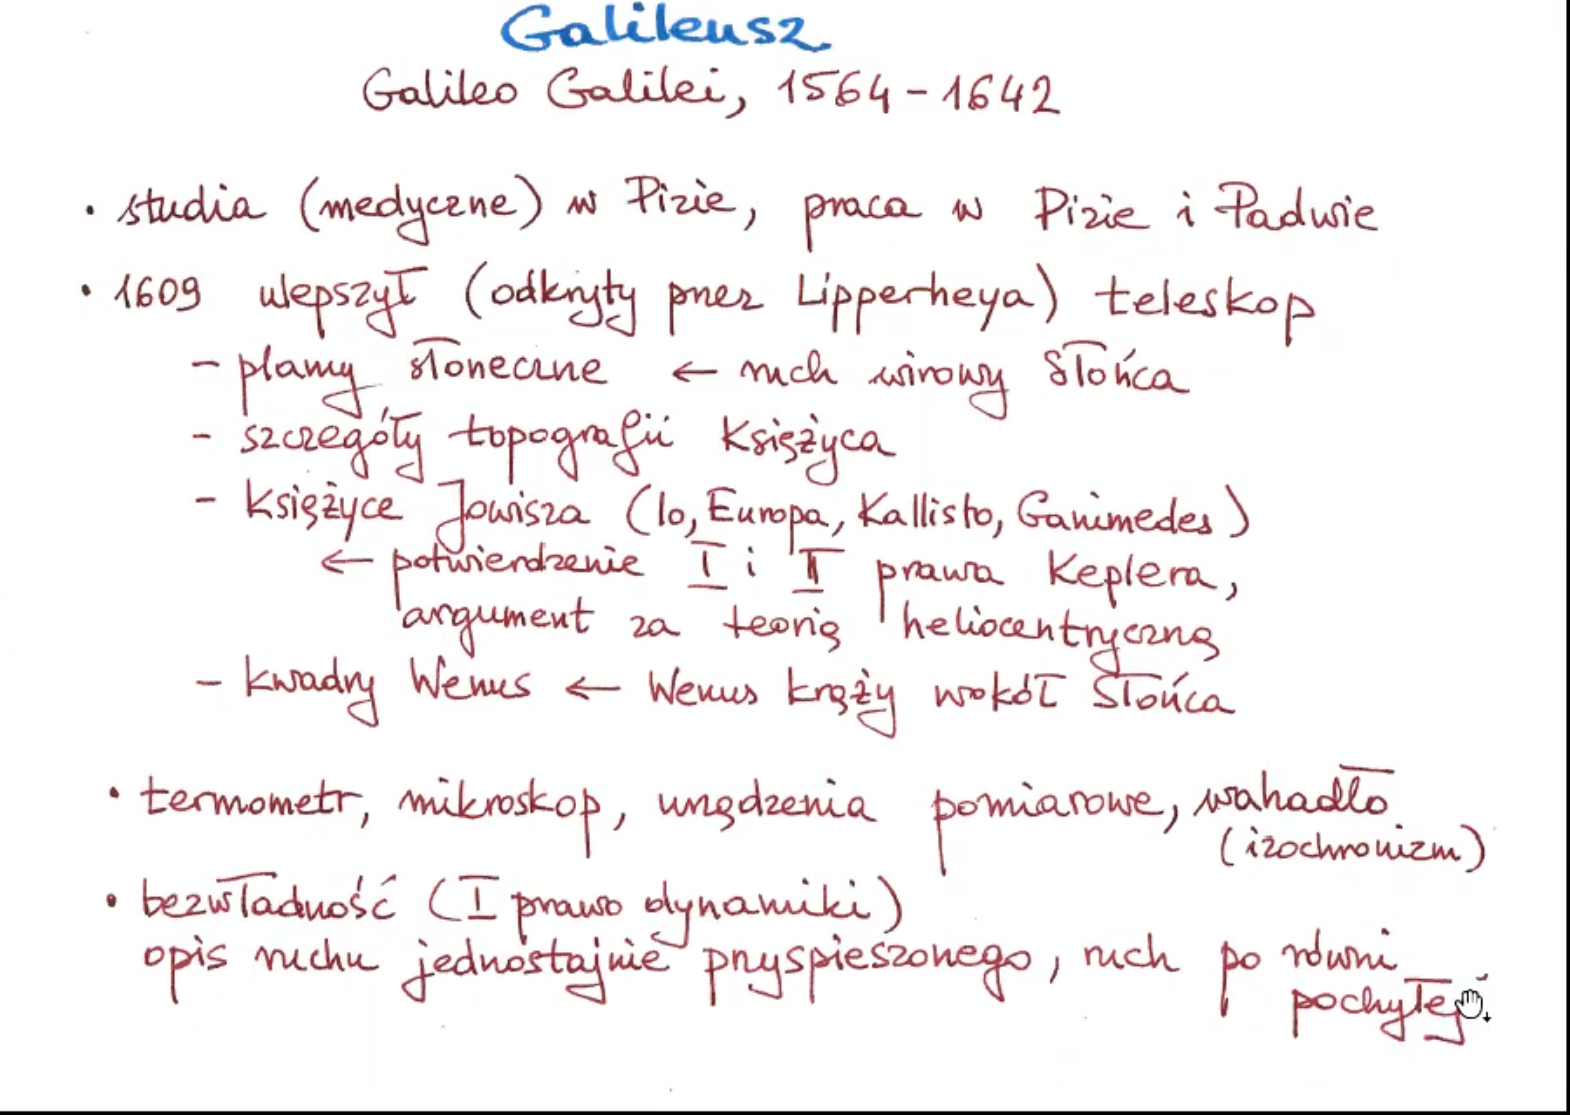 Galileusz
Galileo Galilei, 1564-1642
• studia (medyczne) w Pizie, praca w Pizie i Padwie
• 1609 ulepszył (odkryty przez Lipperheya) teleskop
- plamy słoneczne ← ruch wirowy Słońca
- szczegóły topografii Księżyca
- Księżyce Jowisza (Io, Europa, Kallisto, Ganimedes)
← potwierdzenie I i II prawa Keplera,
argument za teorią heliocentryczną
- kwadry Wenus ← Wenus krąży wokół Słońca
• termometr, mikroskop, urządzenia pomiarowe, wahadło
(izochronizm)
• bezwładność (I prawo dynamiki)
opis ruchu jednostajnie przyspieszonego, ruch po równi
pochyłej